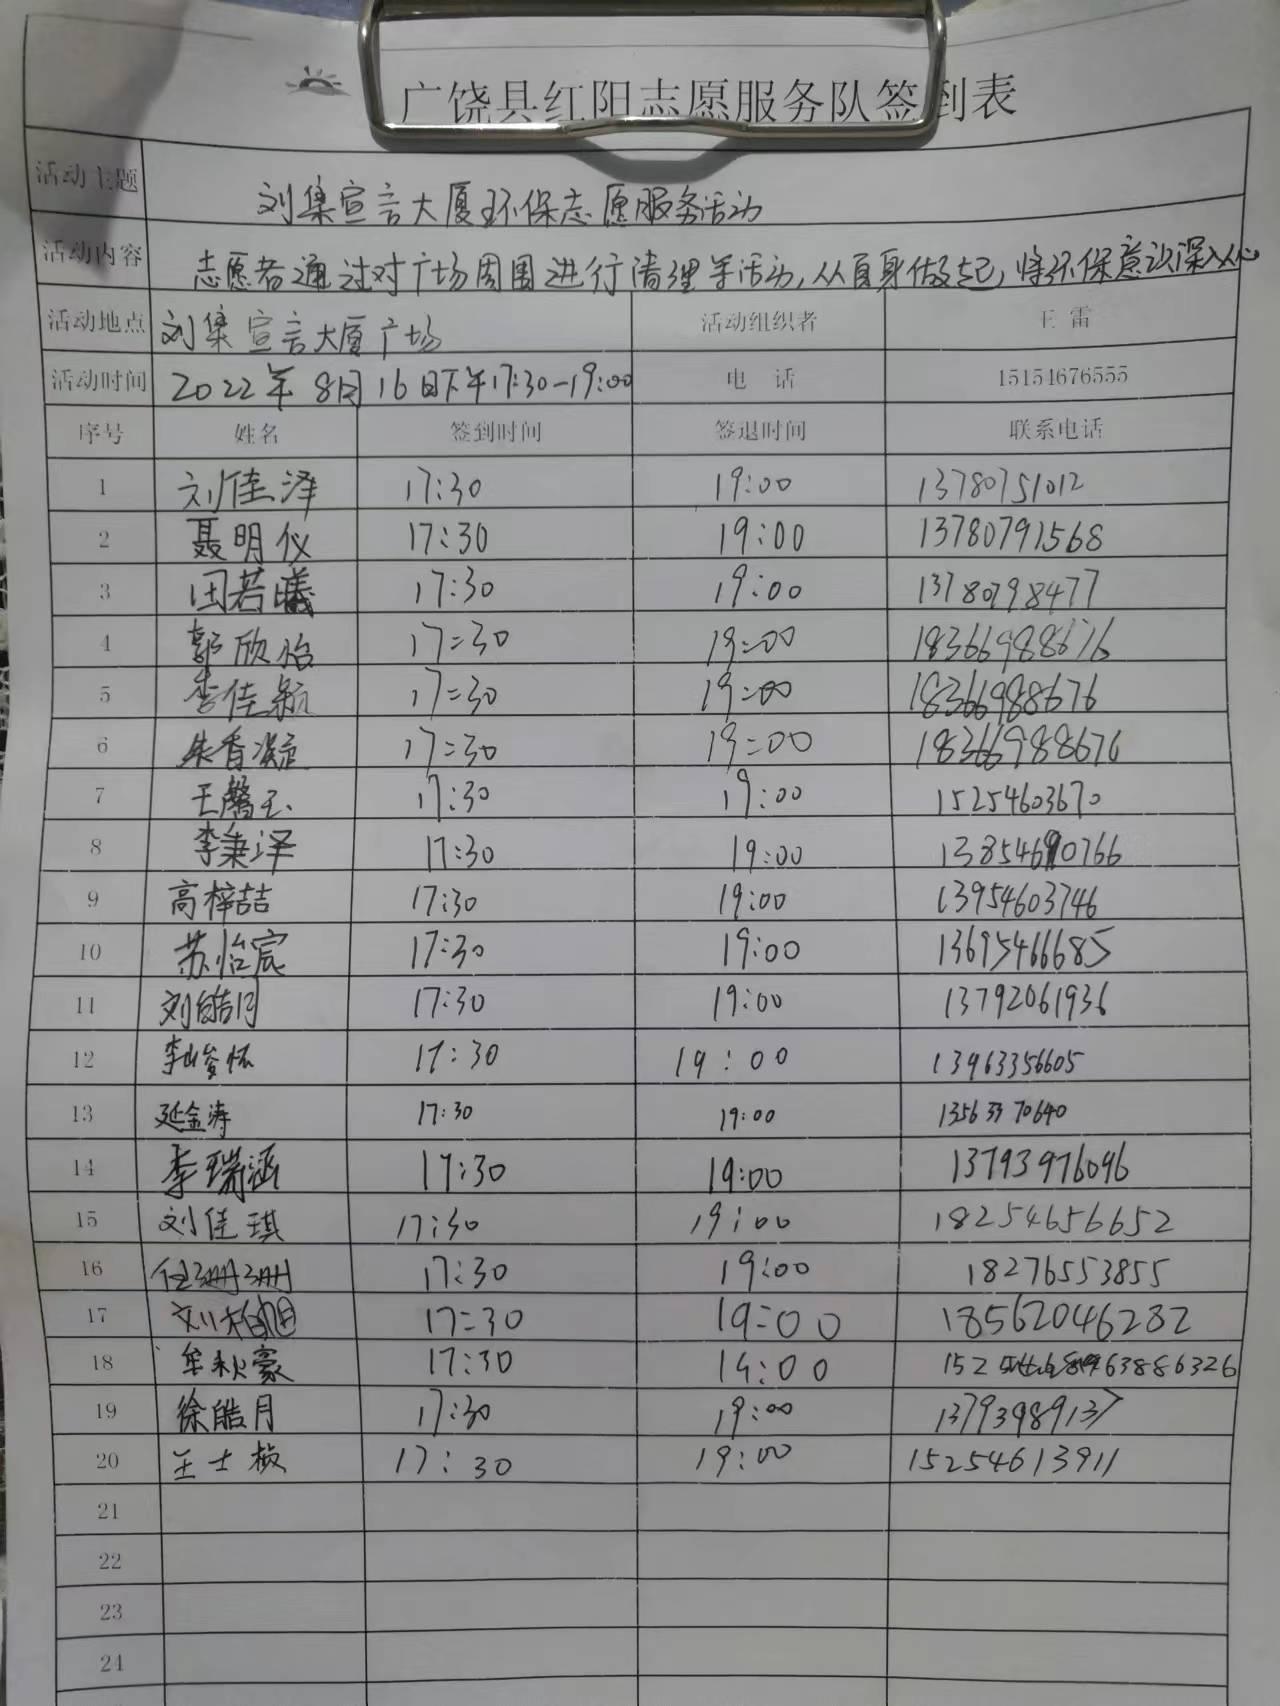 广饶县红阳志愿服务队签到表
活动主题 刘集宣言大厦环保志愿服务活动
活动内容 志愿者通过对广场周围进行清理等活动,从自身做起,将环保意识深入人心
活动地点 刘集宣言大厦广场 活动组织者 王雷
活动时间 2022年8月16日下午17:30-19:00 电话 15154676555
序号 姓名 签到时间 签退时间 联系电话
1 刘佳泽 17:30 19:00 13780751012
2 聂明仪 17:30 19:00 13780791568
3 田若曦 17:30 19:00 13780798477
4 郭欣怡 17:30 19:00 18366988676
5 李佳颖 17:30 19:00 18366988676
6 朱香凝 17:30 19:00 18366988676
7 王馨玉 17:30 19:00 15254603670
8 李秉泽 17:30 19:00
9 高梓喆 17:30 19:00 13954603746
10 苏怡宸 17:30 19:00 13695466685
11 刘皓月 17:30 19:00 13792061936
12 李峻怀 17:30 19:00 13963356605
13 延金涛 17:30 19:00 13563370640
14 李瑞涵 17:30 19:00 13793976096
15 刘佳琪 17:30 19:00 18254656652
16 任珊珊 17:30 19:00 18276553855
17 17:30 19:00 18562046282
18 牟秋豪 17:30 19:00
19 徐皓月 17:30 19:00 13793989137
20 王士 17:30 19:00 15254613911
21
22
23
24